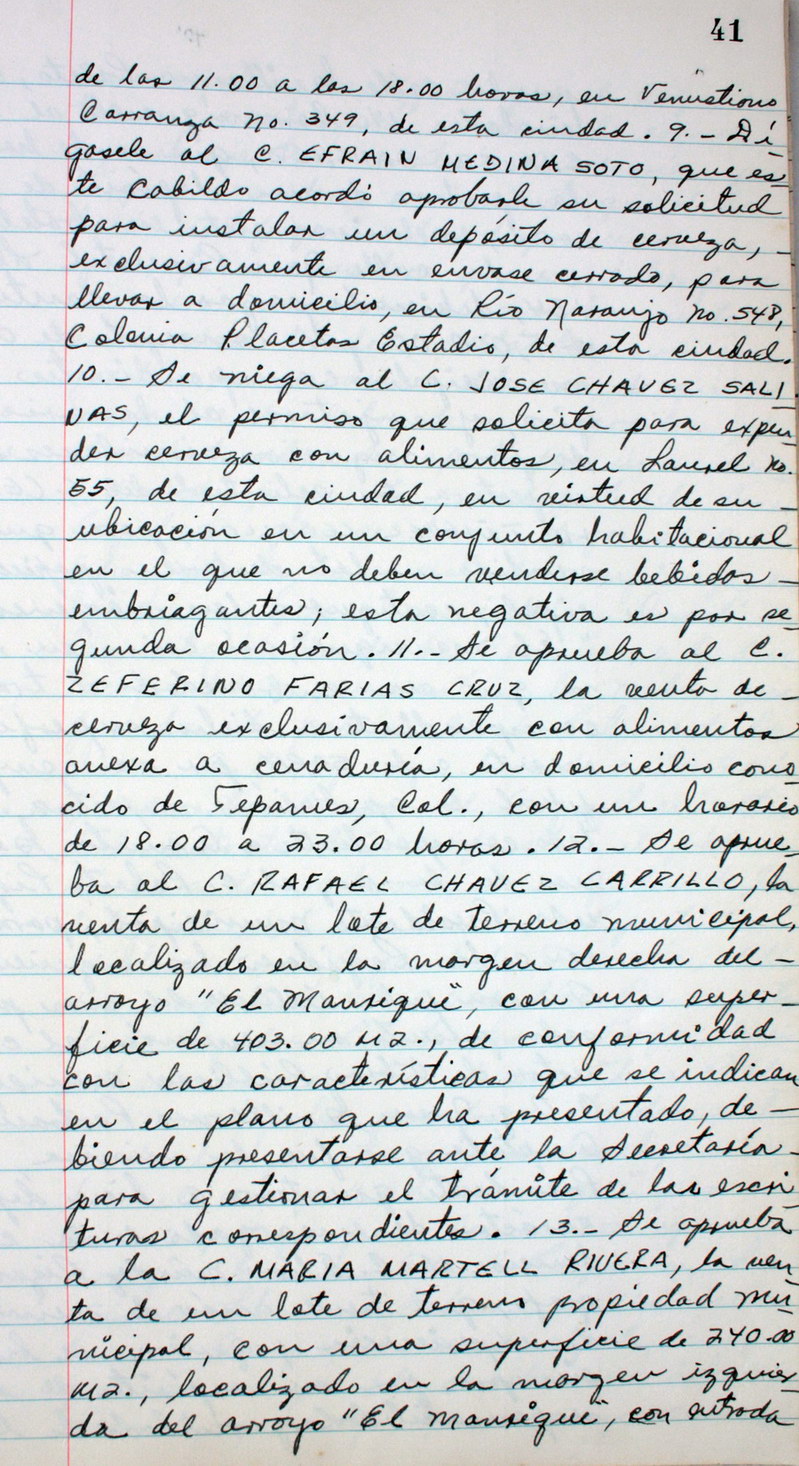 41
de las 11.00 a las 18.00 horas, en Venustiono
Carranza No. 349, de esta ciudad. 9.- Dí
gasele al C. EFRAIN MEDINA SOTO, que es-
te Cabildo acordó aprobarle su solicitud
para instalar un depósito de cerveza, -
exclusivamente en envase cerrado, para
llevar a domicilio, en Río Naranjo No. 548,
Colonia Placetas Estadio, de esta ciudad.
10.- Se niega al C. JOSE CHAVEZ SALI
NAS, el permiso que solicita para expen-
der cerveza con alimentos, en Laurel No.
55, de ésta ciudad, en virtud de su -
ubicación en un conjunto habitacional
en el que no deben venderse bebidas -
embriagantes; esta negativa es por se-
gunda ocasión. 11.- Se aprueba al C.
ZEFERINO FARIAS CRUZ, la venta de -
cerveza exclusivamente con alimentos
anexa a cenaduría, en domicilio cono-
cido de Tepames, Col., con un horario
de 18.00 a 23.00 horas. 12.- Se aprue-
ba al C. RAFAEL CHAVEZ CARRILLO, la
venta de un lote de terreno municipal,
localizado en la margen derecha del -
arroyo "El Manrique", con una super-
ficie de 403.00 M2., de conformidad
con las características que se indican
en el plano que ha presentado, de -
biendo presentarse ante la Secretaría -
para gestionar el trámite de las escri-
turas correspondientes. 13.- Se aprueba
a la C. MARIA MARTELL RIVERA, la ven-
ta de un lote de terreno propiedad mu-
nicipal, con una superficie de 240.00
M2., localizado en la margen izquier-
da del arroyo "El Manrique", con entrada